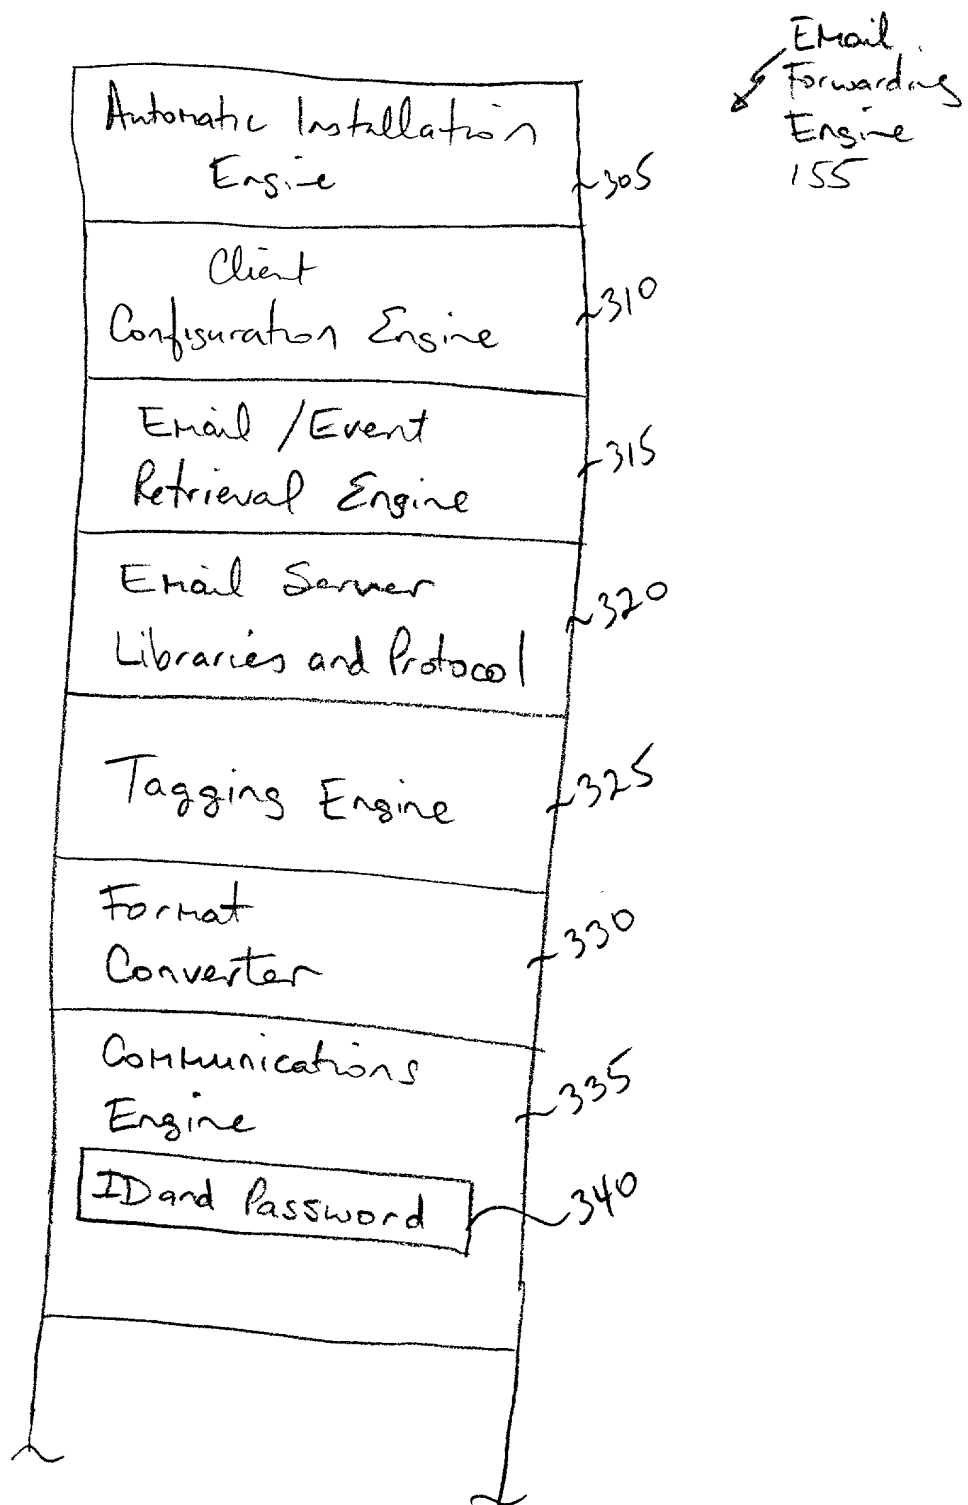 Email
Forwarding
Engine
155
Automatic Installation
Engine
305
Client
Configuration Engine
310
Email / Event
Retrieval Engine
315
Email Server
Libraries and Protocol
320
Tagging Engine
325
Format
Converter
330
Communications
Engine
335
ID and Password
340